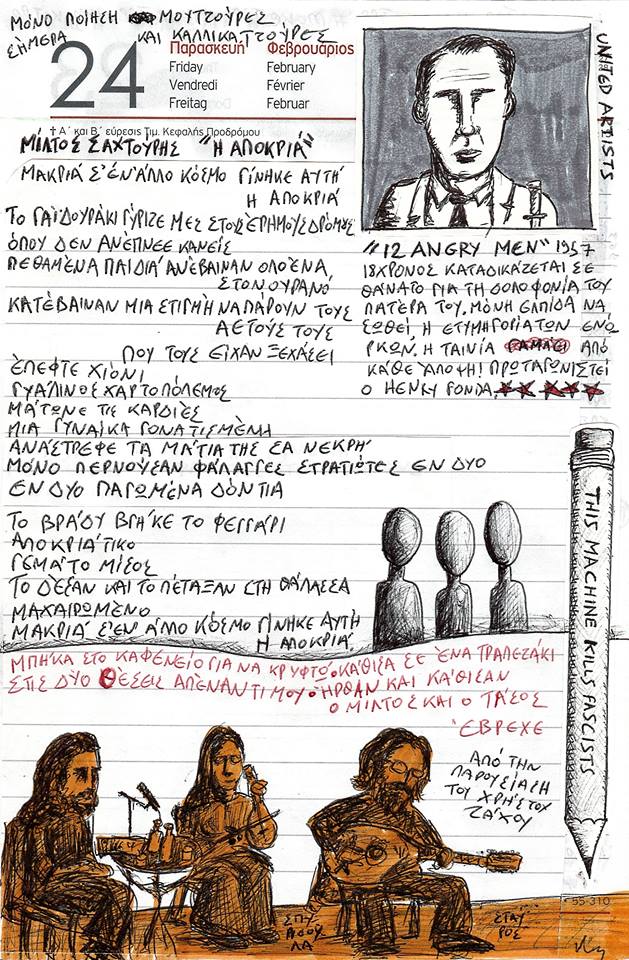 ΜΟΝΟ ΠΟΙΗΣΗ ΜΟΥΤΖΟΥΡΕΣ
ΣΗΜΕΡΑ ΚΑΙ ΚΑΛΛΙΚΑΤΖΟΥΡΕΣ
24
Παρασκευή Φεβρουάριος
Friday February
Vendredi Février
Freitag Februar
† Α΄ και Β΄ εύρεσις Τιμ. Κεφαλής Προδρόμου
ΜΙΛΤΟΣ ΣΑΧΤΟΥΡΗΣ "Η ΑΠΟΚΡΙΑ"
ΜΑΚΡΙΑ Σ'ΕΝ'ΑΛΛΟ ΚΟΣΜΟ ΓΙΝΗΚΕ ΑΥΤΗ
Η ΑΠΟΚΡΙΑ
ΤΟ ΓΑΪΔΟΥΡΑΚΙ ΓΥΡΙΖΕ ΜΕΣ ΣΤΟΥΣ ΕΡΗΜΟΥΣ ΔΡΟΜΟΥΣ
ΟΠΟΥ ΔΕΝ ΑΝΕΠΝΕΕ ΚΑΝΕΙΣ
ΠΕΘΑΜΕΝΑ ΠΑΙΔΙΑ ΑΝΕΒΑΙΝΑΝ ΟΛΟΕΝΑ
ΣΤΟΝ ΟΥΡΑΝΟ
ΚΑΤΕΒΑΙΝΑΝ ΜΙΑ ΣΤΙΓΜΗ ΝΑ ΠΑΡΟΥΝ ΤΟΥΣ
ΑΕΤΟΥΣ ΤΟΥΣ
ΠΟΥ ΤΟΥΣ ΕΙΧΑΝ ΞΕΧΑΣΕΙ
ΕΠΕΦΤΕ ΧΙΟΝΙ
ΓΥΑΛΙΝΟΣ ΧΑΡΤΟΠΟΛΕΜΟΣ
ΜΑΤΩΝΕ ΤΙΣ ΚΑΡΔΙΕΣ
ΜΙΑ ΓΥΝΑΙΚΑ ΓΟΝΑΤΙΣΜΕΝΗ
ΑΝΑΣΤΡΕΦΕ ΤΑ ΜΑΤΙΑ ΤΗΣ ΣΑ ΝΕΚΡΗ
ΜΟΝΟ ΠΕΡΝΟΥΣΑΝ ΦΑΛΑΓΓΕΣ ΣΤΡΑΤΙΩΤΕΣ ΕΝ ΔΥΟ
ΕΝ ΔΥΟ ΠΑΓΩΜΕΝΑ ΔΟΝΤΙΑ
ΤΟ ΒΡΑΔΥ ΒΓΗΚΕ ΤΟ ΦΕΓΓΑΡΙ
ΑΠΟΚΡΙΑΤΙΚΟ
ΓΕΜΑΤΟ ΜΙΣΟΣ
ΤΟ ΔΕΣΑΝ ΚΑΙ ΤΟ ΠΕΤΑΞΑΝ ΣΤΗ ΘΑΛΑΣΣΑ
ΜΑΧΑΙΡΩΜΕΝΟ
ΜΑΚΡΙΑ Σ'ΕΝ ΑΛΛΟ ΚΟΣΜΟ ΓΙΝΗΚΕ ΑΥΤΗ
Η ΑΠΟΚΡΙΑ.
UNITED ARTISTS
"12 ANGRY MEN" 1957
18ΧΡΟΝΟΣ ΚΑΤΑΔΙΚΑΖΕΤΑΙ ΣΕ
ΘΑΝΑΤΟ ΓΙΑ ΤΗ ΔΟΛΟΦΟΝΙΑ ΤΟΥ
ΠΑΤΕΡΑ ΤΟΥ. ΜΟΝΗ ΕΛΠΙΔΑ ΝΑ
ΣΩΘΕΙ Η ΕΤΥΜΗΓΟΡΙΑ ΤΩΝ ΕΝΟ
ΡΚΩΝ. Η ΤΑΙΝΙΑ ΓΑΜΑΕΙ ΑΠΟ
ΚΑΘΕ ΑΠΟΨΗ! ΠΡΩΤΑΓΩΝΙΣΤΕΙ
Ο HENRY FONDA. ★★★★★
THIS MACHINE KILLS FASCISTS
ΜΠΗΚΑ ΣΤΟ ΚΑΦΕΝΕΙΟ ΓΙΑ ΝΑ ΚΡΥΦΤΩ. ΚΑΘΙΣΑ ΣΕ ΕΝΑ ΤΡΑΠΕΖΑΚΙ
ΣΤΙΣ ΔΥΟ ΘΕΣΕΙΣ ΑΠΕΝΑΝΤΙ ΜΟΥ ΗΡΘΑΝ ΚΑΙ ΚΑΘΙΣΑΝ
Ο ΜΙΛΤΟΣ ΚΑΙ Ο ΤΑΣΟΣ
ΕΒΡΕΧΕ
ΑΠΟ ΤΗΝ
ΠΑΡΟΥΣΙΑΣΗ
ΤΟΥ ΧΡΗΣΤΟΥ
ΖΑΧΟΥ
55-310
ΣΠΥ
ΡΙΔΟΥ
ΛΑ
ΣΤΑΥ
ΡΟΣ